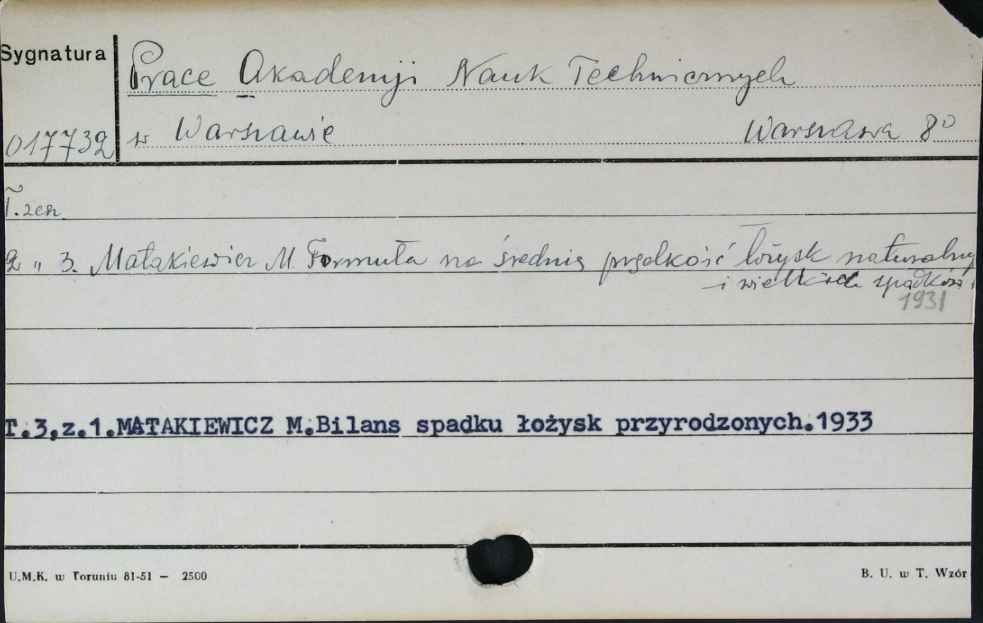 Sygnatura
Prace Akademji Nauk Technicznych
017732 w Warszawie Warszawa 8°
T. zesz.
2 " 3. Matakiewicz M. Formuła na średnią prędkość łożysk naturalny
i wielkich spadków
1931
T.3,z.1.MATAKIEWICZ M.Bilans spadku łożysk przyrodzonych.1933
U.M.K. w Toruniu 81-51 — 2500
B. U. w T. Wzór